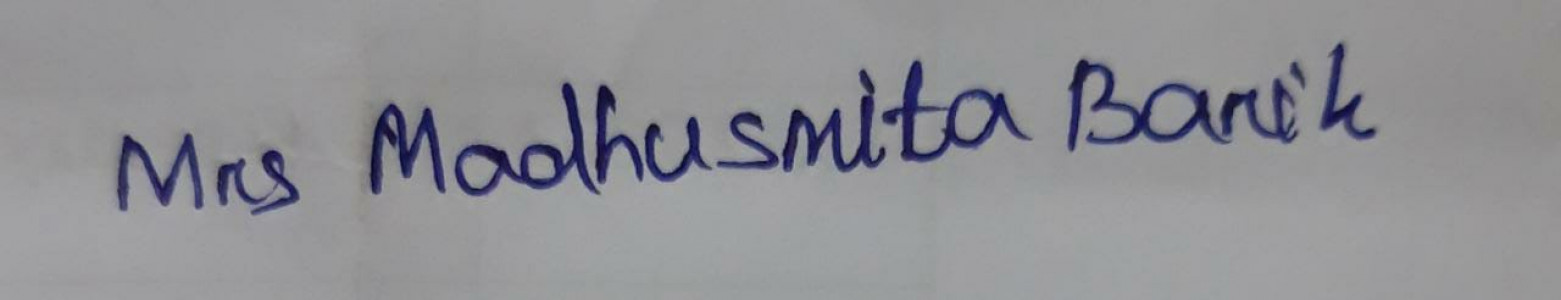 Mrs Madhusmita Barik